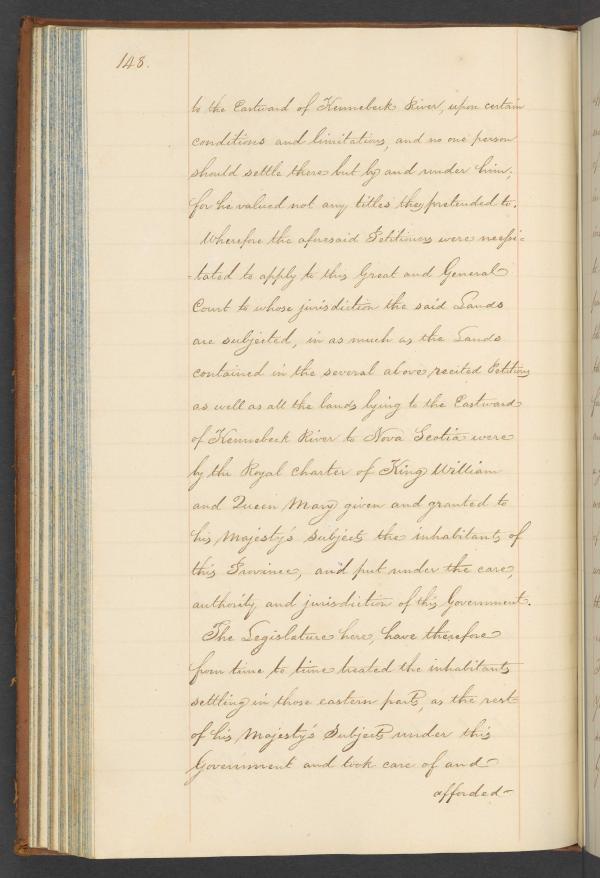 148.
to the Eastward of Kennebeck River, upon certain
conditions and limitations, and no one person
should settle there but by and under him,
for he valued not any titles they pretended to.
Wherefore the aforesaid Petitioners were nessi-
-tated to apply to this Great and General
Court to whose jurisdiction the said Lands
are subjected, in as much as the Lands
contained in the several above recited Petitions
as well as all the lands lying to the Eastward
of Kennebeck River to Nova Scotia were
by the Royal charter of King William
and Queen Mary given and granted to
his Majesty's Subjects the inhabitants of
this Province, and put under the care,
authority and jurisdiction of this Government.
The Legislature here, have therefore
from time to time treated the inhabitants
settling in those eastern parts, as the rest
of his Majesty's Subjects under this
Government and took care of and
afforded